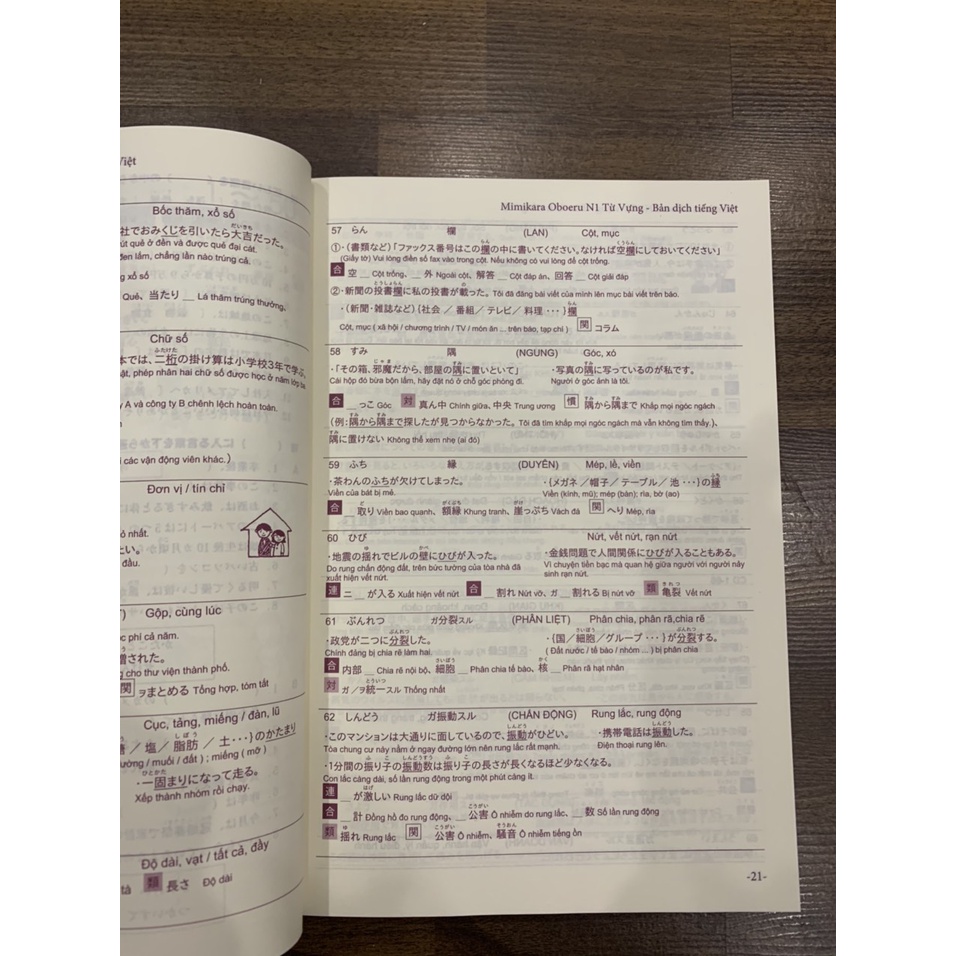 Việt
Bốc thăm, xổ số
社でおみくじを引いたら大吉だった。
út quẻ ở đền và được quẻ đại cát.
đen lắm, chẳng lần nào trúng cả.
g xổ số
Quẻ、当たり __ Lá thăm trúng thưởng,
Chữ số
本では、二桁の掛け算は小学校3年で学ぶ。
ật, phép nhân hai chữ số được học ở năm lớp ba
y A và công ty B chênh lệch hoàn toàn.
i các vận động viên khác.)
Đơn vị / tín chỉ
ỏ nhất.
たい。
đầu.
Gộp, cùng lúc
c phí cả năm.
増された。
g cho thư viện thành phố.
関 ヲまとめる Tổng hợp, tóm tắt
Cục, tảng, miếng / đàn, lũ
/ 塩/ 脂肪 / 土・・・}のかたまり
ường / muối / đất ) ; miếng ( mỡ )
・一固まりになって走る。
Xếp thành nhóm rồi chạy.
Độ dài, vạt / tất cả, đầy
tà 類 長さ Độ dài
Mimikara Oboeru N1 Từ Vựng - Bản dịch tiếng Việt
57 らん 欄 (LAN) Cột, mục
①・(書類など)「ファックス番号はこの欄の中に書いてください、なければ空欄にしておいてください」
(Giấy tờ) Vui lòng điền số fax vào trong cột. Nếu không có vui lòng để cột trống.
合 空 __ Cột trống、__ 外 Ngoài cột、解答 __ Cột đáp án、回答 __ Cột giải đáp
②・新聞の投書欄に私の投書が載った。Tôi đã đăng bài viết của mình lên mục bài viết trên báo.
・(新聞・雑誌など) {社会 / 番組/ テレビ/ 料理 ・・・} 欄
Cột, mục ( xã hội / chương trình / TV / món ăn ... trên báo, tạp chí ) 関 コラム
58 すみ 隅 (NGUNG) Góc, xó
・「その箱、邪魔だから、部屋の隅に置いといて」 ・写真の隅に写っているのが私です。
Cái hộp đó bừa bộn lắm, hãy đặt nó ở chỗ góc phòng đi. Người ở góc ảnh là tôi.
合 __ っこ Góc 対 真ん中 Chính giữa、中央 Trung ương 慣 隅から隅まで Khắp mọi ngóc ngách
(例:隅から隅まで探したが見つからなかった。Tôi đã tìm khắp mọi ngóc ngách mà vẫn không tìm thấy.)、
隅に置けない Không thể xem nhẹ (ai đó)
59 ふち 縁 (DUYÊN) Mép, lề, viền
・茶わんのふちが欠けてしまった。 ・{メガネ / 帽子 / テーブル / 池 ・・・}の縁
Viền của bát bị mẻ. Viền (kính, mũ); mép (bàn); rìa, bờ (ao)
合 __ 取り Viền bao quanh、額縁 Khung tranh、崖っぷち Vách đá 関 へり Mép, rìa
60 ひび Nứt, vết nứt, rạn nứt
・地震の揺れでビルの壁にひびが入った。 ・金銭問題で人間関係にひびが入ることもある。
Do rung chấn động đất, trên bức tường của tòa nhà đã Vì chuyện tiền bạc mà quan hệ giữa người với người nảy
xuất hiện vết nứt. sinh rạn nứt.
連 ニ __ が入る Xuất hiện vết nứt 合 __ 割れ Nứt vỡ、ガ __ 割れる Bị nứt vỡ 類 亀裂 Vết nứt
61 ぶんれつ ガ分裂スル (PHÂN LIỆT) Phân chia, phân rã,chia rẽ
・政党が二つに分裂した。 ・{国/ 細胞 /グループ ・・・} が分裂する。
Chính đảng bị chia rẽ làm hai. ( Đất nước / tế bào / nhóm ... ) bị phân chia
合 内部 __ Chia rẽ nội bộ、細胞 __ Phân chia tế bào、核 __ Phân rã hạt nhân
対 ガ /ヲ統一スル Thống nhất
62 しんどう ガ振動スル (CHẤN ĐỘNG) Rung lắc, rung động
・このマンションは大通りに面しているので、振動がひどい。 ・携帯電話は振動した。
Tòa chung cư này nằm ở ngay đường lớn nên rung lắc rất mạnh. Điện thoại rung lên.
・1分間の振り子の振動数は振り子の長さが長くなるほど少なくなる。
Con lắc càng dài, số lần rung động trong một phút càng ít.
連 __ が激しい Rung lắc dữ dội
合 __ 計 Đồng hồ đo rung động、__ 公害 Ô nhiễm do rung lắc、__ 数 Số lần rung động
類 揺れ Rung lắc 関 公害 Ô nhiễm、騒音 Ô nhiễm tiếng ồn
-21-